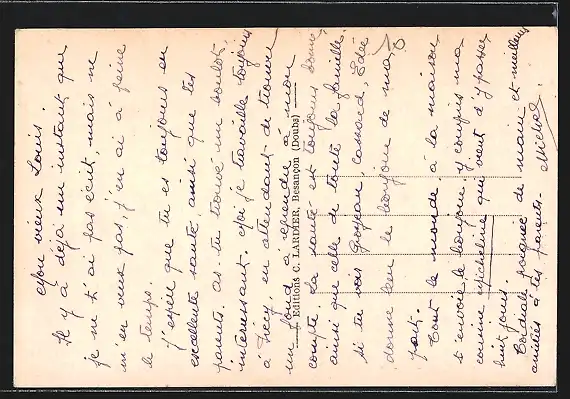 Mon vieux Louis.
Il y a déjà un instant que
je ne t'ai pas écrit, mais ne
m'en veux pas, j'en ai à peine
le temps.
J'espère que tu es toujours en
excellente santé, ainsi que tes
parents. as-tu trouvé un boulot
intéressant. Moi je travaille toujours
à Lecey, en attendant de trouver
un fond à reprendre à mon
compte. La santé est toujours bonne
ainsi que celle de toute la famille.
si tu vois Goyon, Cassard,
donne leur le bonjour de ma
part.
Tout le monde à la maison
t'envoie le bonjour, y compris ma
cousine Micheline qui vient d'y passer
huit jours.
Cordiale poignée de main et meilleures
amitiés à tes parents.
Michel
Editions C. LARDIER, Besançon (Doubs)